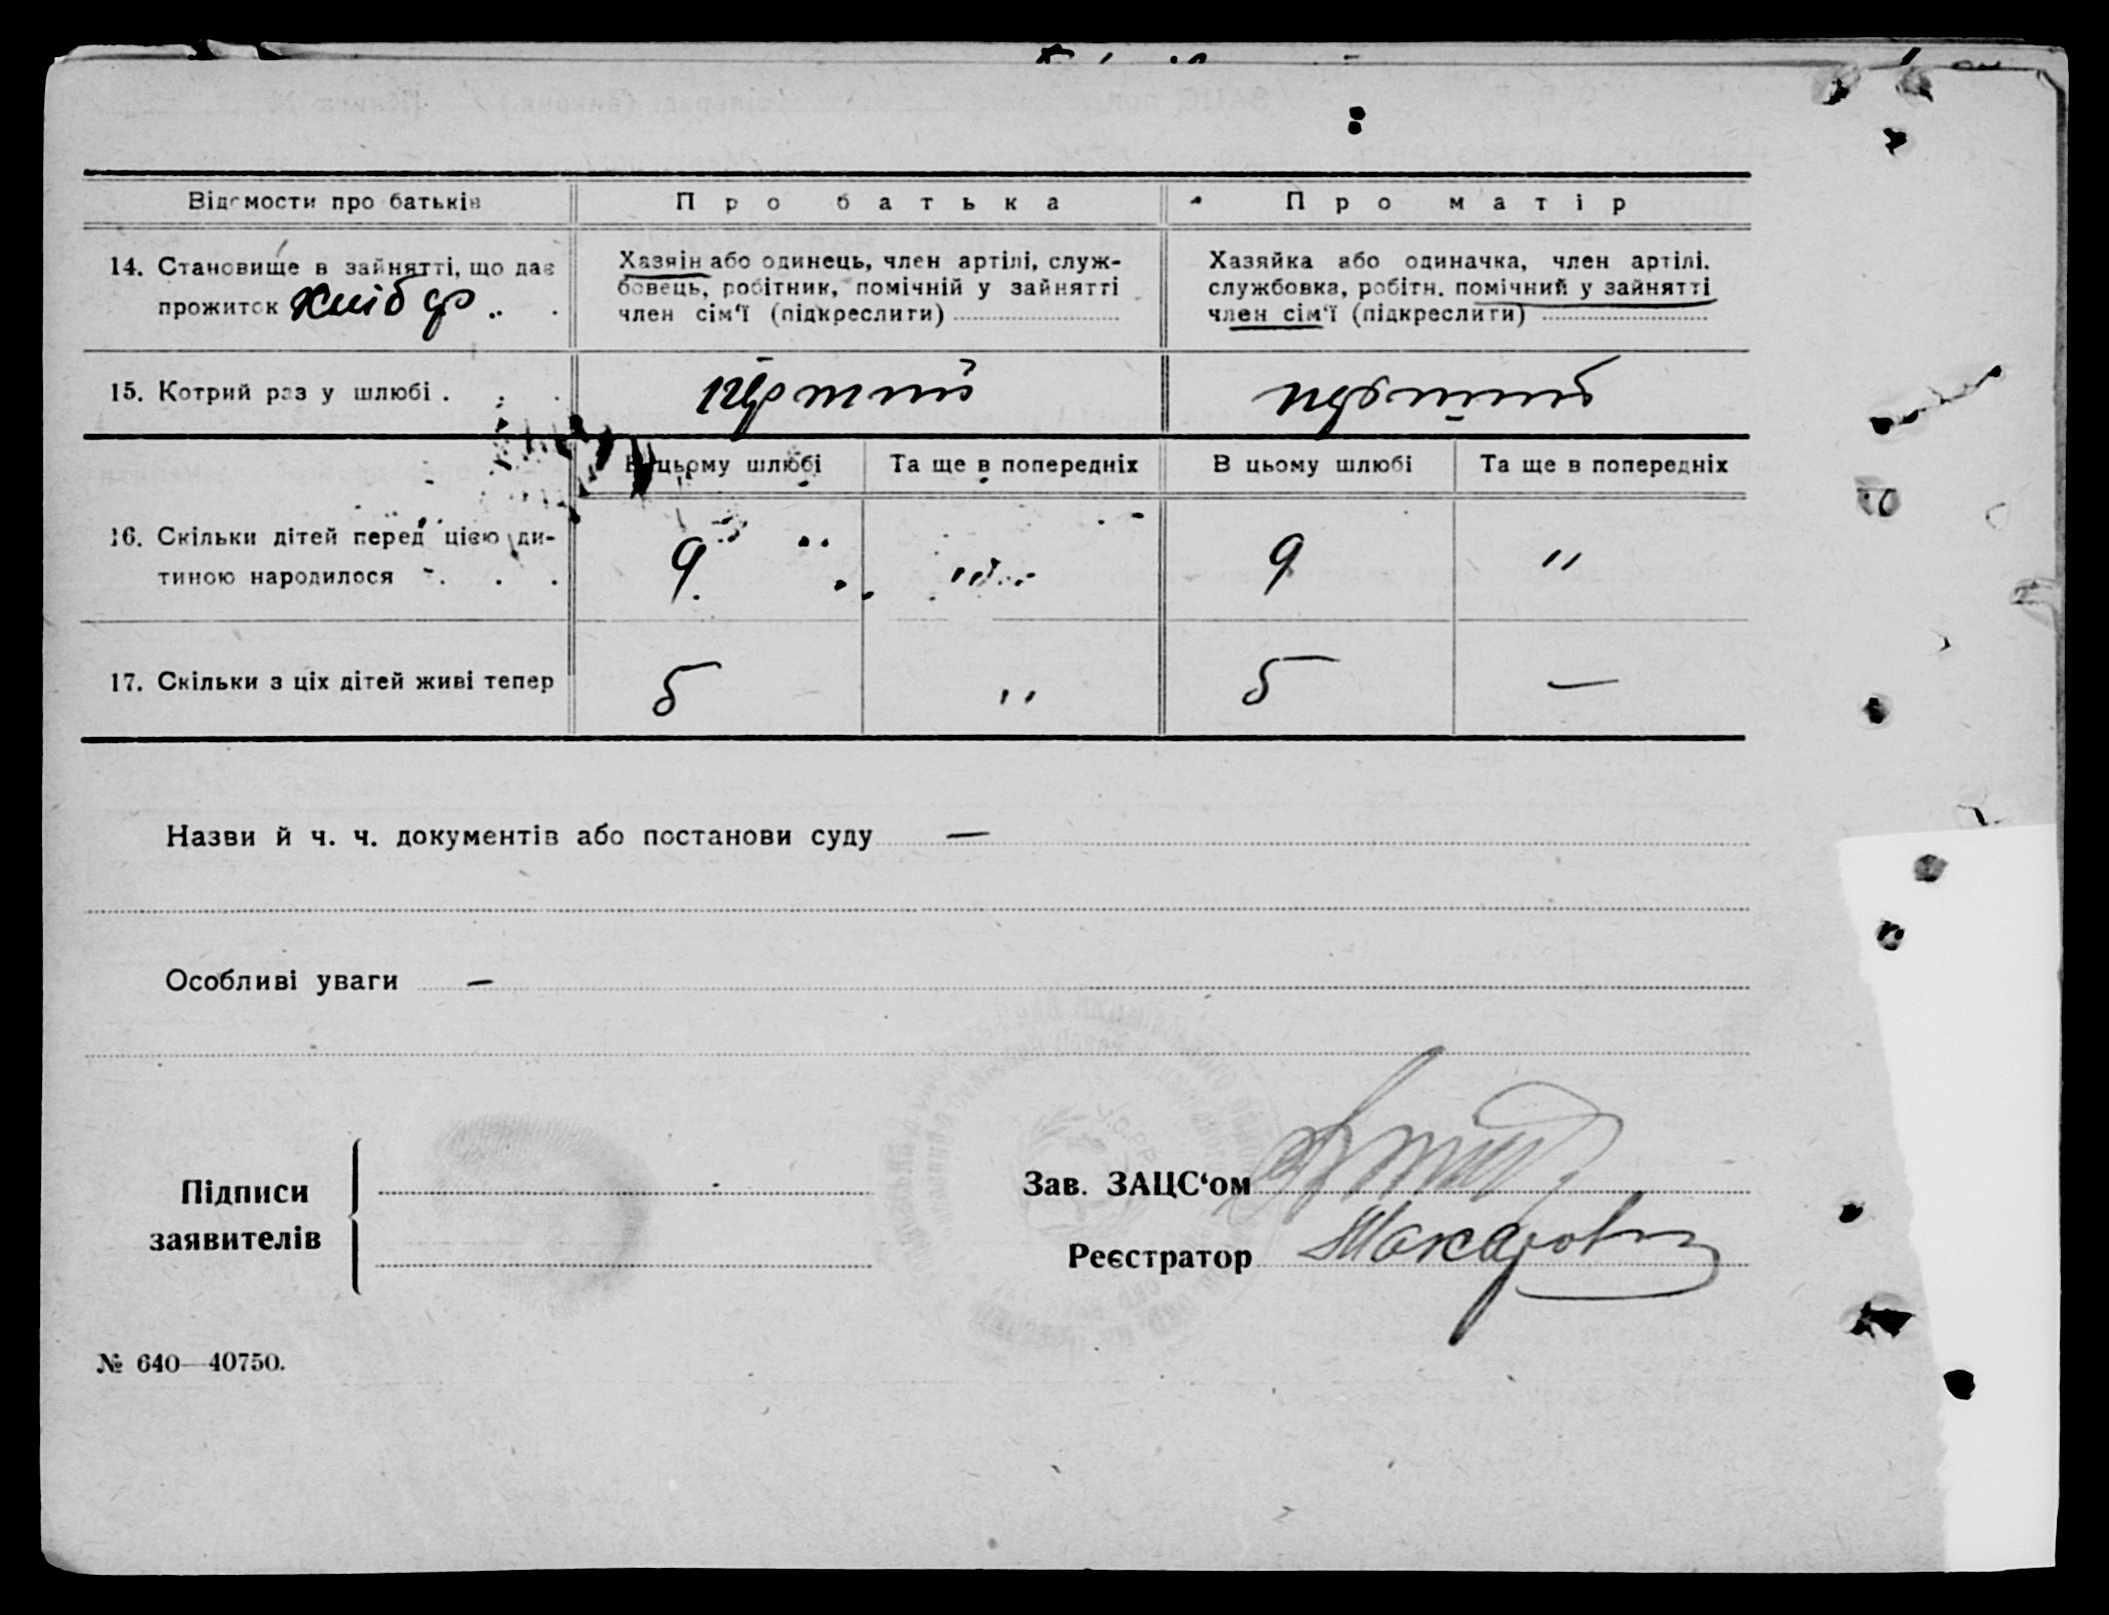 Відомости про батьків
Про батька
Про матір
14. Становище в зайнятті, що дає
прожиток хліб
Хазяїн або одинець, член артілі, служ-
бовець, робітник, помічній у зайнятті
член сім'ї (підкреслити)
Хазяйка або одиначка, член артілі.
службовка, робітн. помічний у зайнятті
член сім'ї (підкреслити)
15. Котрий раз у шлюбі . . .
перший
перший
В цьому шлюбі
Та ще в попередніх
В цьому шлюбі
Та ще в попередніх
16. Скільки дітей перед цією ди-
тиною народилося . . .
9
9
"
17. Скільки з ціх дітей живі тепер
5
"
5
—
Назви й ч. ч. документів або постанови суду —
Особливі уваги —
Підписи
заявителів
Зав. ЗАЦС‘ом
Реєстратор
№ 640—40750.